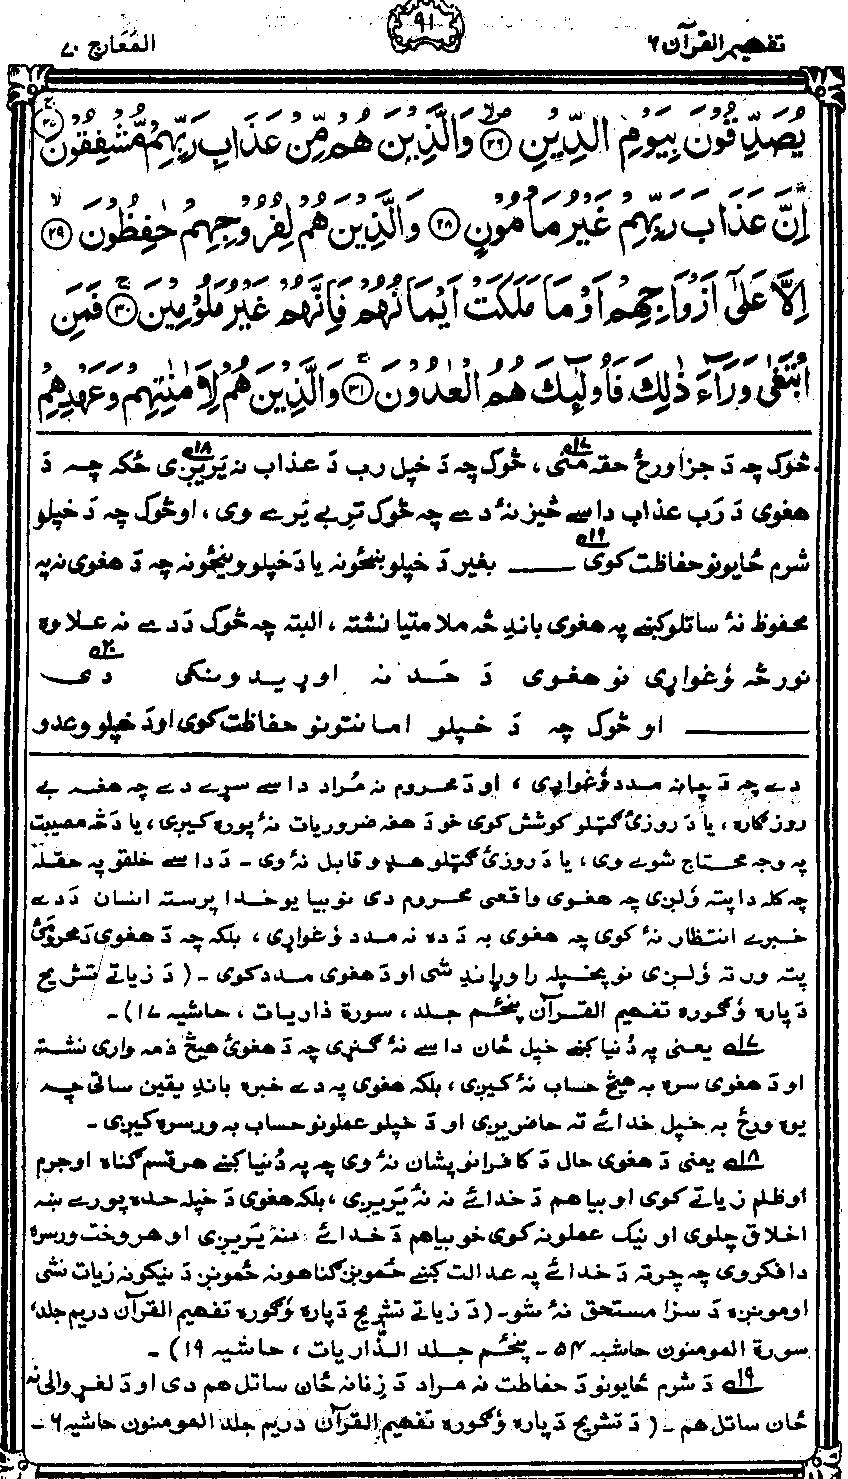 تفهیم القرآن ۶
۹۱
المَعَارج ۷۰
يُصَدِّقُونَ بِيَوْمِ الدِّيْنِ ﴿۲۶﴾ وَالَّذِيْنَ هُمْ مِّنْ عَذَابِ رَبِّهِمْ مُّشْفِقُوْنَ ﴿۲۷﴾
اِنَّ عَذَابَ رَبِّهِمْ غَيْرُ مَاْمُوْنٍ ﴿۲۸﴾ وَالَّذِيْنَ هُمْ لِفُرُوْجِهِمْ حٰفِظُوْنَ ﴿۲۹﴾
اِلَّا عَلٰٓى اَزْوَاجِهِمْ اَوْ مَا مَلَكَتْ اَيْمَانُهُمْ فَاِنَّهُمْ غَيْرُ مَلُوْمِيْنَ ﴿۳۰﴾ فَمَنِ
ابْتَغٰى وَرَآءَ ذٰلِكَ فَاُولٰٓئِكَ هُمُ الْعٰدُوْنَ ﴿۳۱﴾ وَالَّذِيْنَ هُمْ لِاَمٰنٰتِهِمْ وَعَهْدِهِمْ
څوک چه دَ جزا ورځ حقه مَنی ۱۷، څوک چه دَ خپل رب دَ عذاب نه یَریږی ۱۸ ځکه چه دَ
هغوی دَ رَب عذاب داسے څیز نهٔ دے چه څوک تربے یَرے وی، او څوک چه دَ خپلو
شرم ځایونو حفاظت کوی ۱۹ ــــ بغیر دَ خپلو ښځو نه یا دَ خپلو وینځو نه چه دَ هغوی نه په
محفوظ نهٔ ساتلو کښے په هغوی باندِ څه ملامتیا نشته، البته چه څوک دَ دے نه علاوه
نور څه وُغواړی نو هغوی دَ حَد نه اوړیدونکی دی ۲۰
ــــ او څوک چه دَ خپلو امانتونو حفاظت کوی او دَ خپلو وعدو
دے چه دَ چا نه مدد وُغواړی، او دَ محروم نه مُراد داسے سړے دے چه هغه بے
روزګاره، یا دَ روزئ ګټلو کوشش کوی خو دَ هغه ضروریات نهٔ پوره کیږی، یا دَ څه مصیبت
په وجه محتاج شوے وی، یا دَ روزئ ګټلو هډو قابل نهٔ وی ـ دَ داسے خلقو په حقله
چه کله دا پته وُلږی چه هغوی واقعی محروم دی نو بیا یو خدا پرسته انسان دَ دے
خبرے انتظار نهٔ کوی چه هغوی به دَ ده نه مدد وُغواړی، بلکه چه دَ هغوی دَ محرومئ
پته ورته وُلږی نو پخپله راوړاندِ شی او دَ هغوی مدد کوی ـ (دَ زیاتے تشریح
دَ پاره وُګوره تفهیم القرآن پنځم جلد، سورة ذاریات، حاشیه ۱۷) ـ
۱۷ یعنی په دُنیا کښے خپل ځان داسے نهٔ ګنړی چه دَ هغوئ هیڅ ذمه واری نشته
او دَ هغوی سره به هیڅ حساب نهٔ کیږی، بلکه هغوی په دے خبره باندِ یقین ساتی چه
یوه ورځ به خپل خدائے ته حاضریږی او دَ خپلو عملونو حساب به ورسره کیږی ـ
۱۸ یعنی دَ هغوی حال دَ کافرانو پشان نهٔ وی چه په دُنیا کښے هر قسم ګناه او جرم
او ظلم زیاتے کوی او بیا هم دَ خدائے نه نهٔ یَریږی، بلکه هغوی دَ خپله حده پورے ښه
اخلاق چلوی او نیک عملونه کوی خو بیا هم دَ خدائے نه یَریږی او هر وخت ورسره
دا فکر وی چه چرته دَ خدائے په عدالت کښے ځمونږ ګناهونه ځمونږ دَ نیکو نه زیات نشی
او مونږه دَ سزا مستحق نهٔ شو ـ (دَ زیاتے تشریح دَ پاره وُګوره تفهیم القرآن دریم جلد،
سورة المومنون حاشیه ۵۴ ـ پنځم جلد الذّاریات، حاشیه ۱۹) ـ
۱۹ دَ شرم ځایونو دَ حفاظت نه مراد دَ زِنا نه ځان ساتل هم دی او دَ لغړ والی نه
ځان ساتل هم ـ (دَ تشریح دَ پاره وُګوره تفهیم القرآن دریم جلد المومنون حاشیه ۶ ـ